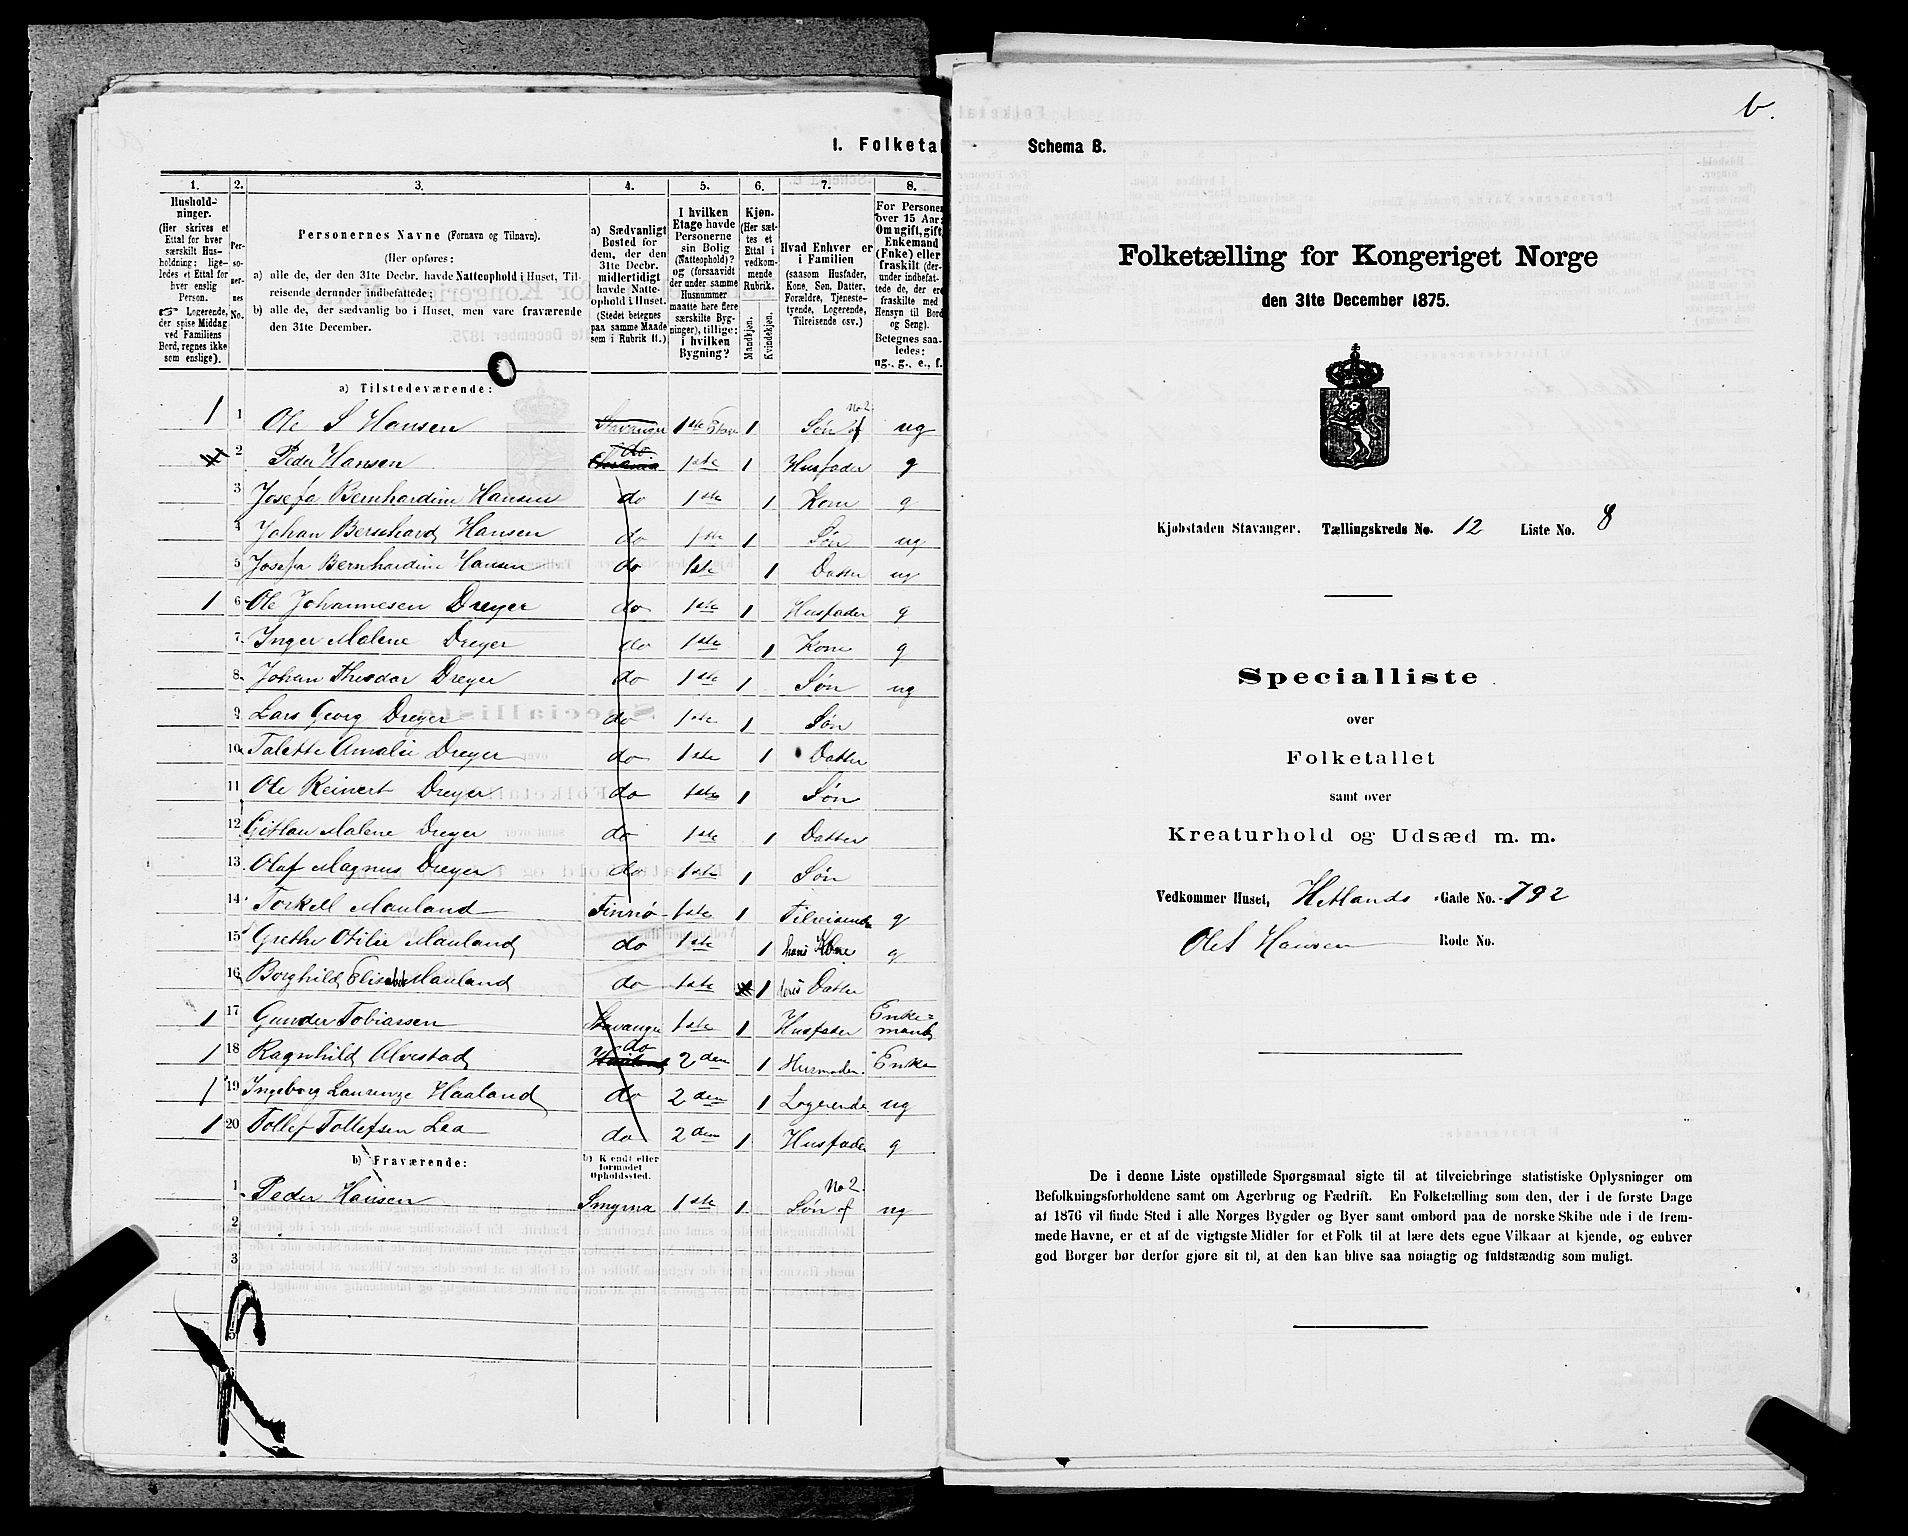 I. Folketal
1. 2. 3. 4. 5. 6. 7. 8.
Hushold-
ninger.
(Her skrives et
Ettal for hver
særskilt Hus-
holdning; lige-
ledes et Ettal for
hver enslig
Person.
Logerende,
der spise Middag
ved Familiens
Bord, regnes ikke
som enslige).
Per-
so-
ner-
nes
No.
Personernes Navne (Fornavn og Tilnavn).
(Her opføres:
a) alle de, der den 31te Decbr. havde Natteophold i Huset, Til-
reisende derunder indbefattede;
b) alle de, der sædvanlig bo i Huset, men vare fraværende
den 31te December.
a) Sædvanligt
Bosted for
dem, der den
31te Decbr.
midlertidigt
havde Natte-
ophold i Huset.
(Stedet betegnes
paa samme Maade
som i Rubrik 11.)
I hvilken
Etage havde
Personerne
sin Bolig
(Natteophold)?
og (forsaavidt
der under samme
Husnummer
maatte høre flere
særskilte Byg-
ninger), tillige:
i hvilken
Bygning?
Kjøn.
(Her sæt-
tes et
Ettal i
vedkom-
mende
Rubrik.
Mandkjøn.
Kvindekjøn.
Hvad Enhver er
i Familien
(saasom Husfader,
Kone, Søn, Datter,
Forældre, Tjeneste-
tyende, Logerende,
Tilreisende osv.)
For Personer
over 15 Aar:
Om ugift, gift,
Enkemand
(Enke) eller
fraskilt (der-
under indbefat-
tede de, der ere
fraskilte med
Hensyn til Bord
og Seng).
Betegnes saa-
ledes:
ug., g., e., f.
a) Tilstedeværende:
1 1 Ole S Hansen Stavanger 1ste Etage 1 Søn af No 2 ug
2 Peder Hansen do 1ste 1 Husfader g
3 Josefa Bernhardine Hansen do 1ste 1 Kone g
4 Johan Bernhard Hansen do 1ste 1 Søn ug
5 Josefa Bernhardine Hansen do 1ste 1 Datter ug
1 6 Ole Johannesen Dreyer do 1ste 1 Husfader g
7 Inger Malene Dreyer do 1ste 1 Kone g
8 Johan Theodor Dreyer do 1ste 1 Søn ug
9 Lars Georg Dreyer do 1ste 1 Søn
10 Talette Amalie Dreyer do 1ste 1 Datter
11 Ole Reinert Dreyer do 1ste 1 Søn
12 Malene Dreyer do 1ste 1 Datter
13 Olaf Magnus Dreyer do 1ste 1 Søn
14 Torkell Mauland Finnø 1ste 1 Tilreisende g
15 Grethe Otilie Mauland do 1ste 1 hans Kone g
16 Borghild Elisabeth Mauland do 1ste 1 deres Datter
1 17 Gunder Tobiassen Stavanger 1ste 1 Husfader Enke=
mand
1 18 Ragnhild Alvestad do 2den 1 Husmoder Enke
1 19 Ingeborg Laurenze Haaland do 2den 1 Logerende ug
1 20 Tollef Tollefsen Lea do 2den 1 Husfader g
b) Fraværende:
b) Kendt eller
formodet
Opholdssted.
1 Peder Hansen Smyrna 1ste 1 Søn af No 2 ug
2
3
5
b.
Schema B.
Folketælling for Kongeriget Norge
den 31te December 1875.
Kjøbstaden Stavanger. Tællingskreds No. 12 Liste No. 8
Specialliste
over
Folketallet
samt over
Kreaturhold og Udsæd m. m.
Vedkommer Huset, Hetlands Gade No. 792
Ole S Hansen Rode No.
De i denne Liste opstillede Spørgsmaal sigte til at tilveiebringe statistiske Oplysninger om
Befolkningsforholdene samt om Agerbrug og Fædrift. En Folketælling som den, der i de første Dage
af 1876 vil finde Sted i alle Norges Bygder og Byer samt ombord paa de norske Skibe ude i de frem-
mede Havne, er et af de vigtigste Midler for et Folk til at lære dets egne Vilkaar at kjende, og enhver
god Borger bør derfor gjøre sit til, at den kan blive saa nøiagtig og fuldstændig som muligt.